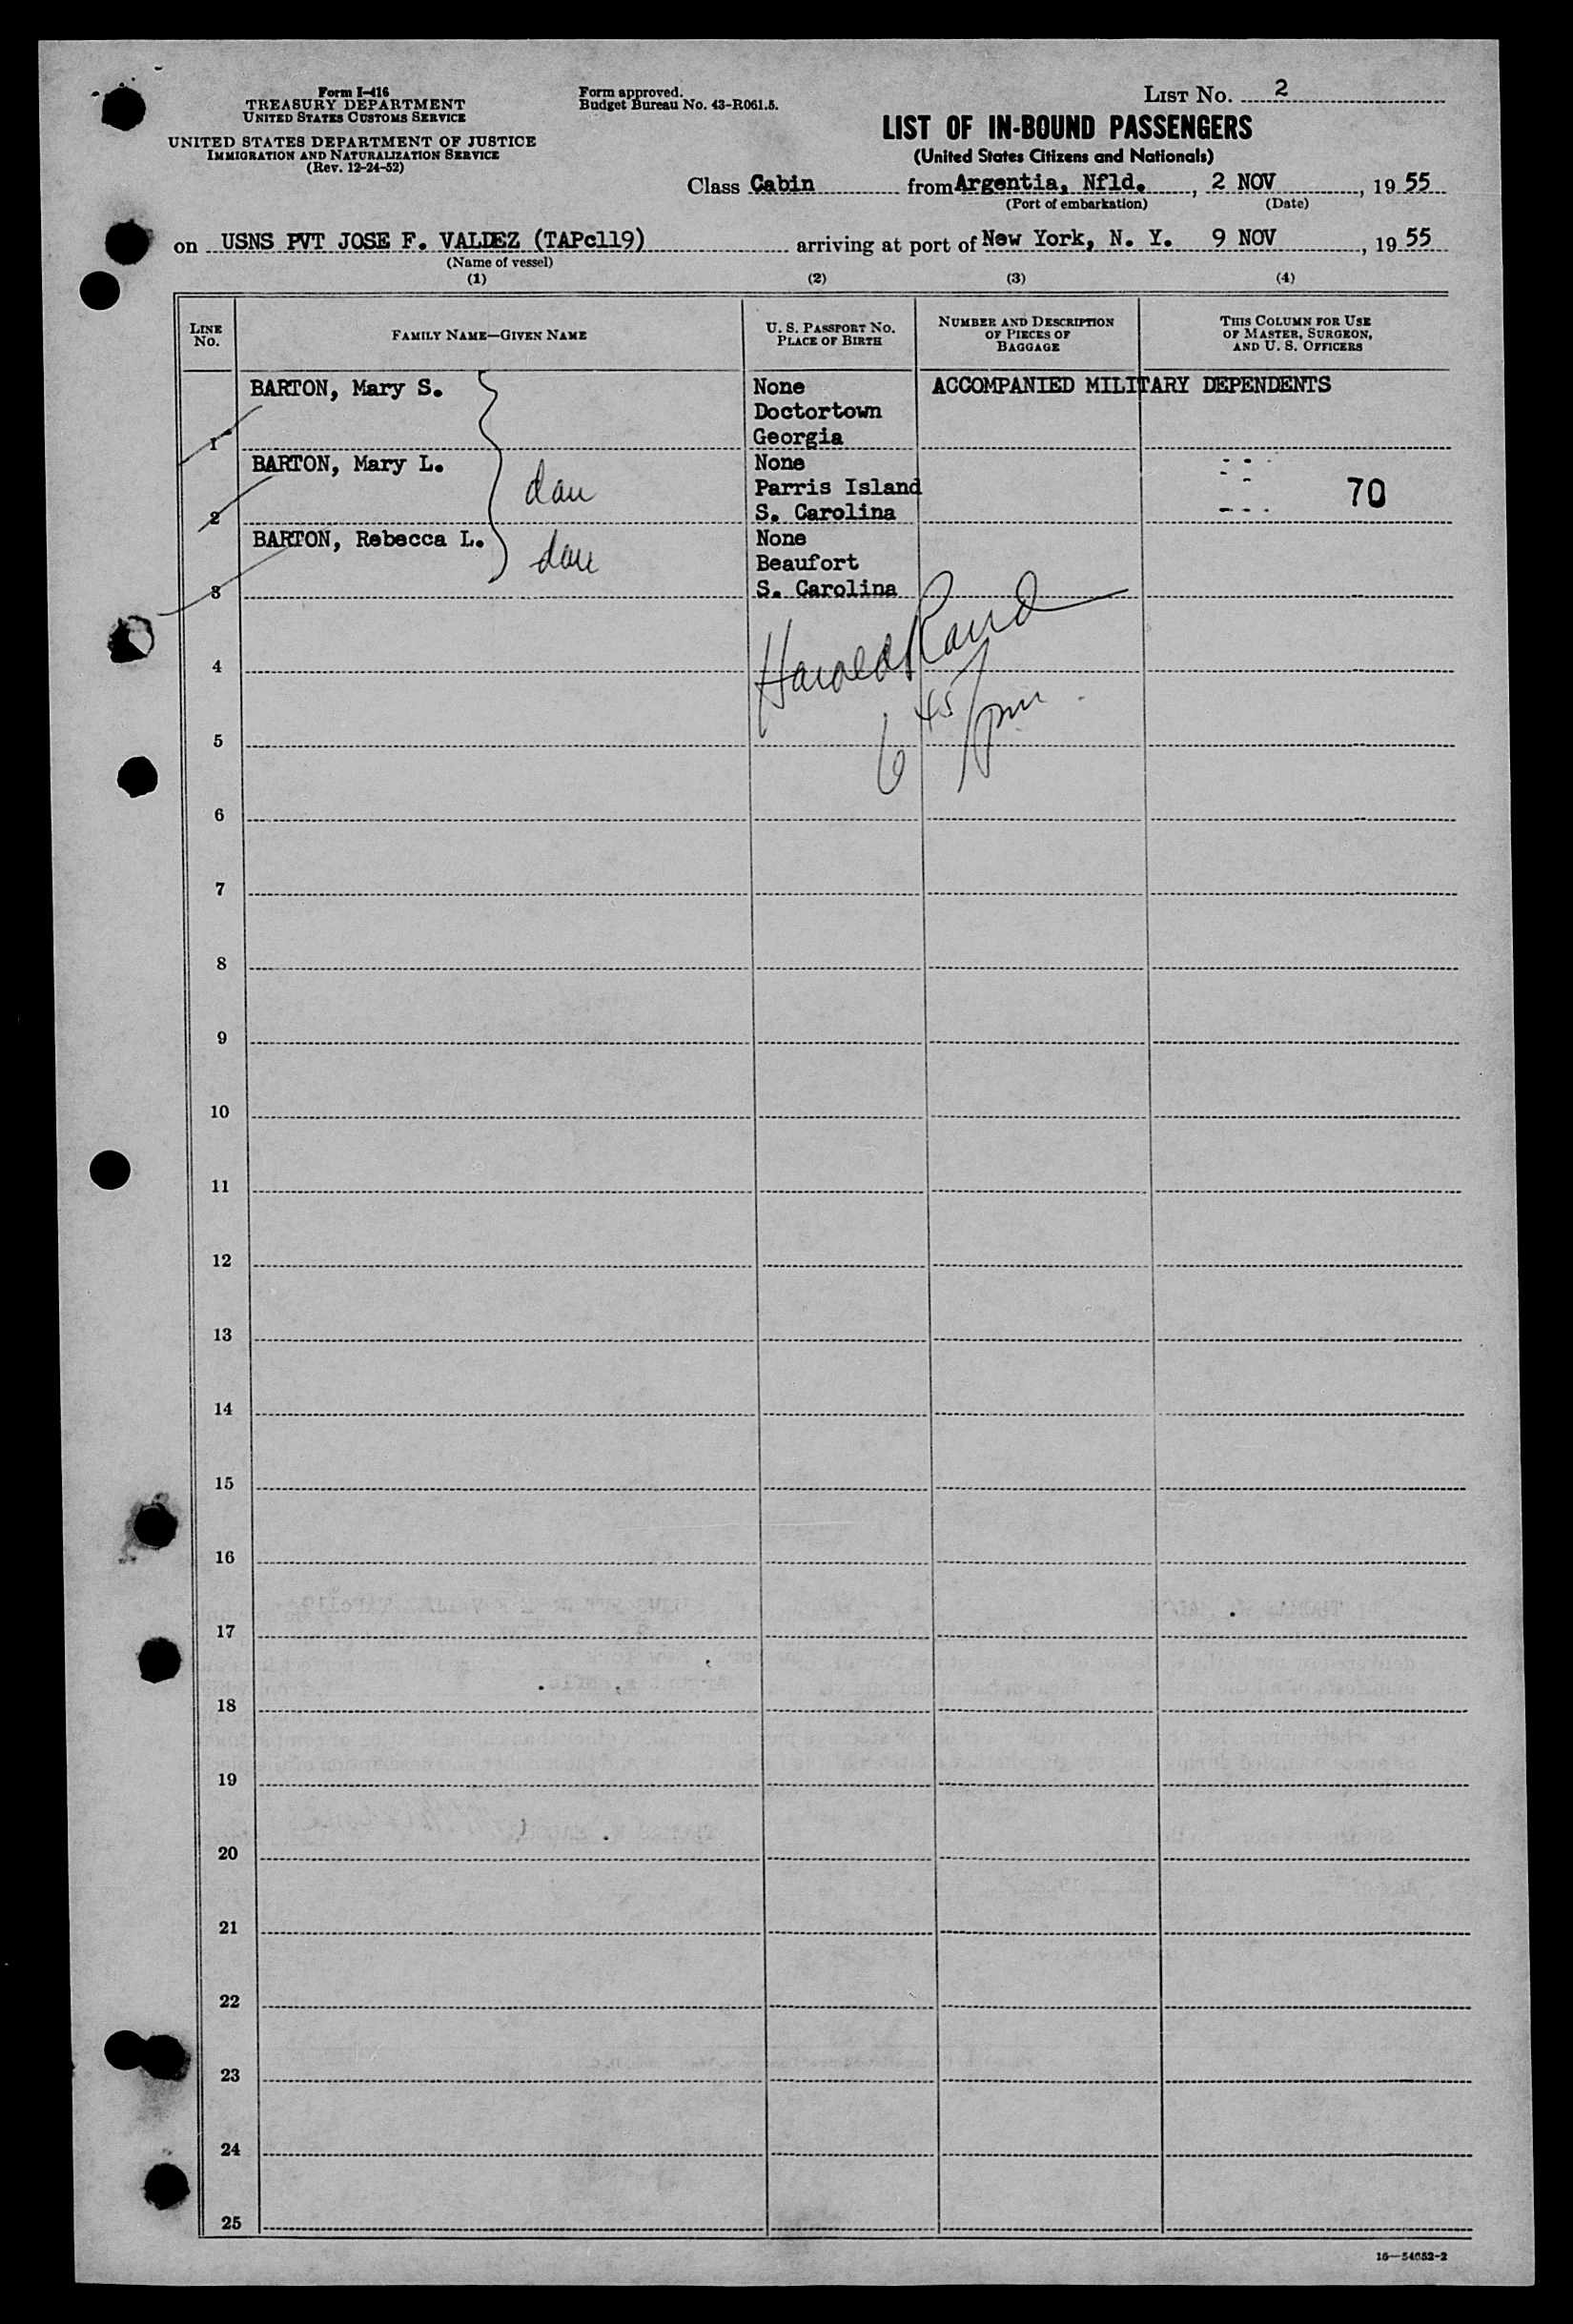 Form I-416
TREASURY DEPARTMENT
UNITED STATES CUSTOMS SERVICE
UNITED STATES DEPARTMENT OF JUSTICE
IMMIGRATION AND NATURALIZATION SERVICE
(Rev. 12-24-52)
Form approved.
Budget Bureau No. 43-R061.5.
LIST No. 2
LIST OF IN-BOUND PASSENGERS
(United States Citizens and Nationals)
Class Cabin from Argentia, Nfld., 2 NOV, 19 55
(Port of embarkation) (Date)
on USNS PVT JOSE F. VALDEZ (TAPc119) arriving at port of New York, N. Y. 9 NOV, 19 55
(Name of vessel)
(1) (2) (3) (4)
LINE No.
FAMILY NAME—GIVEN NAME
U. S. PASSPORT NO.
PLACE OF BIRTH
NUMBER AND DESCRIPTION
OF PIECES OF
BAGGAGE
THIS COLUMN FOR USE
OF MASTER, SURGEON,
AND U. S. OFFICERS
BARTON, Mary S. None ACCOMPANIED MILITARY DEPENDENTS
Doctortown
1 Georgia
BARTON, Mary L. None
dau Parris Island 70
2 S. Carolina
BARTON, Rebecca L. None
dau Beaufort
3 S. Carolina
Harold Rand
4
6 45/pm
5
6
7
8
9
10
11
12
13
14
15
16
17
18
19
20
21
22
23
24
25
16—54652-2